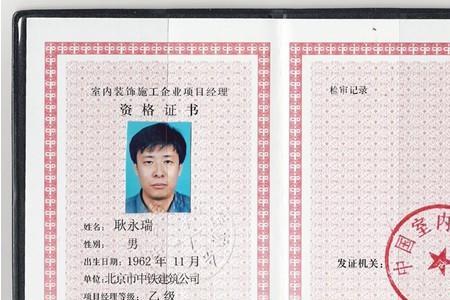 室内装饰施工企业项目经理
资格证书
姓名：耿永瑞
性别：男
出生日期：1962年11月
单位：北京市中铁建筑公司
项目经理等级：乙级
检审记录
发证机关：
中国室内